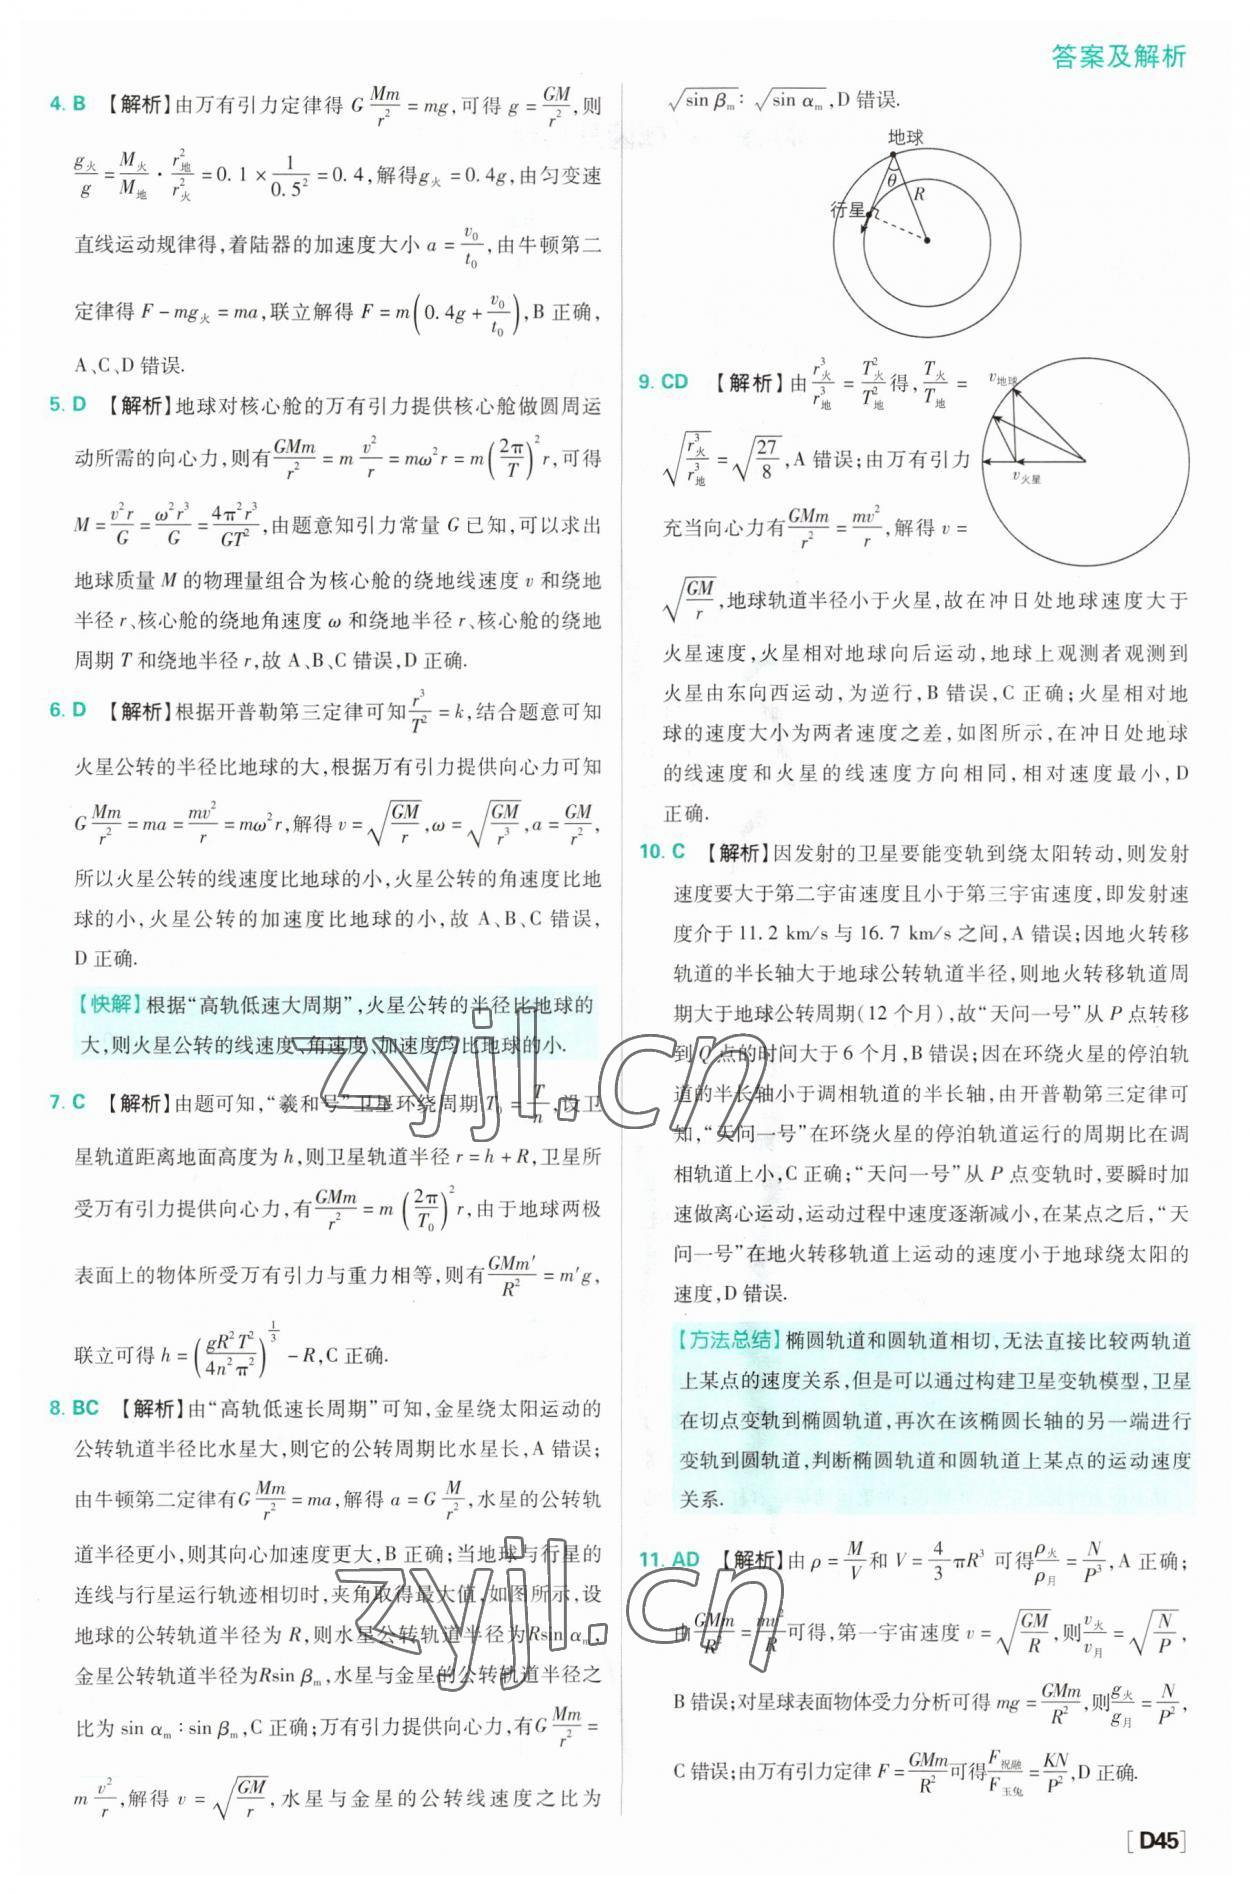 答案及解析
4. B 【解析】由万有引力定律得 G\frac{Mm}{r^2}=mg,可得 g=\frac{GM}{r^2},则
\frac{g_火}{g}=\frac{M_火}{M_地}·\frac{r_地^2}{r_火^2}=0.1×\frac{1}{0.5^2}=0.4,解得g_火=0.4g,由匀变速
直线运动规律得,着陆器的加速度大小 a=\frac{v_0}{t_0},由牛顿第二
定律得 F-mg_火=ma,联立解得 F=m(0.4g+\frac{v_0}{t_0}),B 正确,
A、C、D 错误.
5. D 【解析】地球对核心舱的万有引力提供核心舱做圆周运
动所需的向心力,则有\frac{GMm}{r^2}=m\frac{v^2}{r}=mω^2r=m(\frac{2π}{T})^2r,可得
M=\frac{v^2r}{G}=\frac{ω^2r^3}{G}=\frac{4π^2r^3}{GT^2},由题意知引力常量 G 已知,可以求出
地球质量 M 的物理量组合为核心舱的绕地线速度 v 和绕地
半径 r、核心舱的绕地角速度 ω 和绕地半径 r、核心舱的绕地
周期 T 和绕地半径 r,故 A、B、C 错误,D 正确.
6. D 【解析】根据开普勒第三定律可知\frac{r^3}{T^2}=k,结合题意可知
火星公转的半径比地球的大,根据万有引力提供向心力可知
G\frac{Mm}{r^2}=ma=\frac{mv^2}{r}=mω^2r,解得 v=\sqrt{\frac{GM}{r}},ω=\sqrt{\frac{GM}{r^3}},a=\frac{GM}{r^2},
所以火星公转的线速度比地球的小,火星公转的角速度比地
球的小,火星公转的加速度比地球的小,故 A、B、C 错误,
D 正确.
【快解】根据“高轨低速大周期”,火星公转的半径比地球的
大,则火星公转的线速度、角速度、加速度均比地球的小.
7. C 【解析】由题可知,“羲和号”卫星环绕周期 T_0=\frac{T}{n},设卫
星轨道距离地面高度为 h,则卫星轨道半径 r=h+R,卫星所
受万有引力提供向心力,有\frac{GMm}{r^2}=m(\frac{2π}{T_0})^2r,由于地球两极
表面上的物体所受万有引力与重力相等,则有\frac{GMm'}{R^2}=m'g,
联立可得 h=(\frac{gR^2T^2}{4n^2π^2})^{\frac{1}{3}}-R,C 正确.
8. BC 【解析】由“高轨低速长周期”可知,金星绕太阳运动的
公转轨道半径比水星大,则它的公转周期比水星长,A 错误;
由牛顿第二定律有G\frac{Mm}{r^2}=ma,解得 a=G\frac{M}{r^2},水星的公转轨
道半径更小,则其向心加速度更大,B 正确;当地球与行星的
连线与行星运行轨迹相切时,夹角取得最大值,如图所示,设
地球的公转轨道半径为 R,则水星公转轨道半径为Rsin α_m,
金星公转轨道半径为Rsin β_m,水星与金星的公转轨道半径之
比为 sin α_m:sin β_m,C 正确;万有引力提供向心力,有G\frac{Mm}{r^2}=
m\frac{v^2}{r},解得 v=\sqrt{\frac{GM}{r}},水星与金星的公转线速度之比为
\sqrt{sin β_m}:\sqrt{sin α_m},D 错误.
地球
θ
R
行星
9. CD 【解析】由\frac{r_火^3}{r_地^3}=\frac{T_火^2}{T_地^2}得,\frac{T_火}{T_地}=
\sqrt{\frac{r_火^3}{r_地^3}}=\sqrt{\frac{27}{8}},A 错误;由万有引力
充当向心力有\frac{GMm}{r^2}=\frac{mv^2}{r},解得 v=
v_地球
v_火星
\sqrt{\frac{GM}{r}},地球轨道半径小于火星,故在冲日处地球速度大于
火星速度,火星相对地球向后运动,地球上观测者观测到
火星由东向西运动,为逆行,B 错误,C 正确;火星相对地
球的速度大小为两者速度之差,如图所示,在冲日处地球
的线速度和火星的线速度方向相同,相对速度最小,D
正确.
10. C 【解析】因发射的卫星要能变轨到绕太阳转动,则发射
速度要大于第二宇宙速度且小于第三宇宙速度,即发射速
度介于 11.2 km/s 与 16.7 km/s 之间,A 错误;因地火转移
轨道的半长轴大于地球公转轨道半径,则地火转移轨道周
期大于地球公转周期(12 个月),故“天问一号”从 P 点转移
到 Q 点的时间大于 6 个月,B 错误;因在环绕火星的停泊轨
道的半长轴小于调相轨道的半长轴,由开普勒第三定律可
知,“天问一号”在环绕火星的停泊轨道运行的周期比在调
相轨道上小,C 正确;“天问一号”从 P 点变轨时,要瞬时加
速做离心运动,运动过程中速度逐渐减小,在某点之后,“天
问一号”在地火转移轨道上运动的速度小于地球绕太阳的
速度,D 错误.
【方法总结】椭圆轨道和圆轨道相切,无法直接比较两轨道
上某点的速度关系,但是可以通过构建卫星变轨模型,卫星
在切点变轨到椭圆轨道,再次在该椭圆长轴的另一端进行
变轨到圆轨道,判断椭圆轨道和圆轨道上某点的运动速度
关系.
11. AD 【解析】由 ρ=\frac{M}{V}和 V=\frac{4}{3}πR^3 可得\frac{ρ_火}{ρ_月}=\frac{N}{P^3},A 正确;
由\frac{GMm}{R^2}=\frac{mv^2}{R}可得,第一宇宙速度 v=\sqrt{\frac{GM}{R}},则\frac{v_火}{v_月}=\sqrt{\frac{N}{P}},
B 错误;对星球表面物体受力分析可得 mg=\frac{GMm}{R^2},则\frac{g_火}{g_月}=\frac{N}{P^2},
C 错误;由万有引力定律 F=\frac{GMm}{R^2}可得\frac{F_祝融}{F_玉兔}=\frac{KN}{P^2},D 正确.
zyjl.cn
zyjl.cn
[D45]